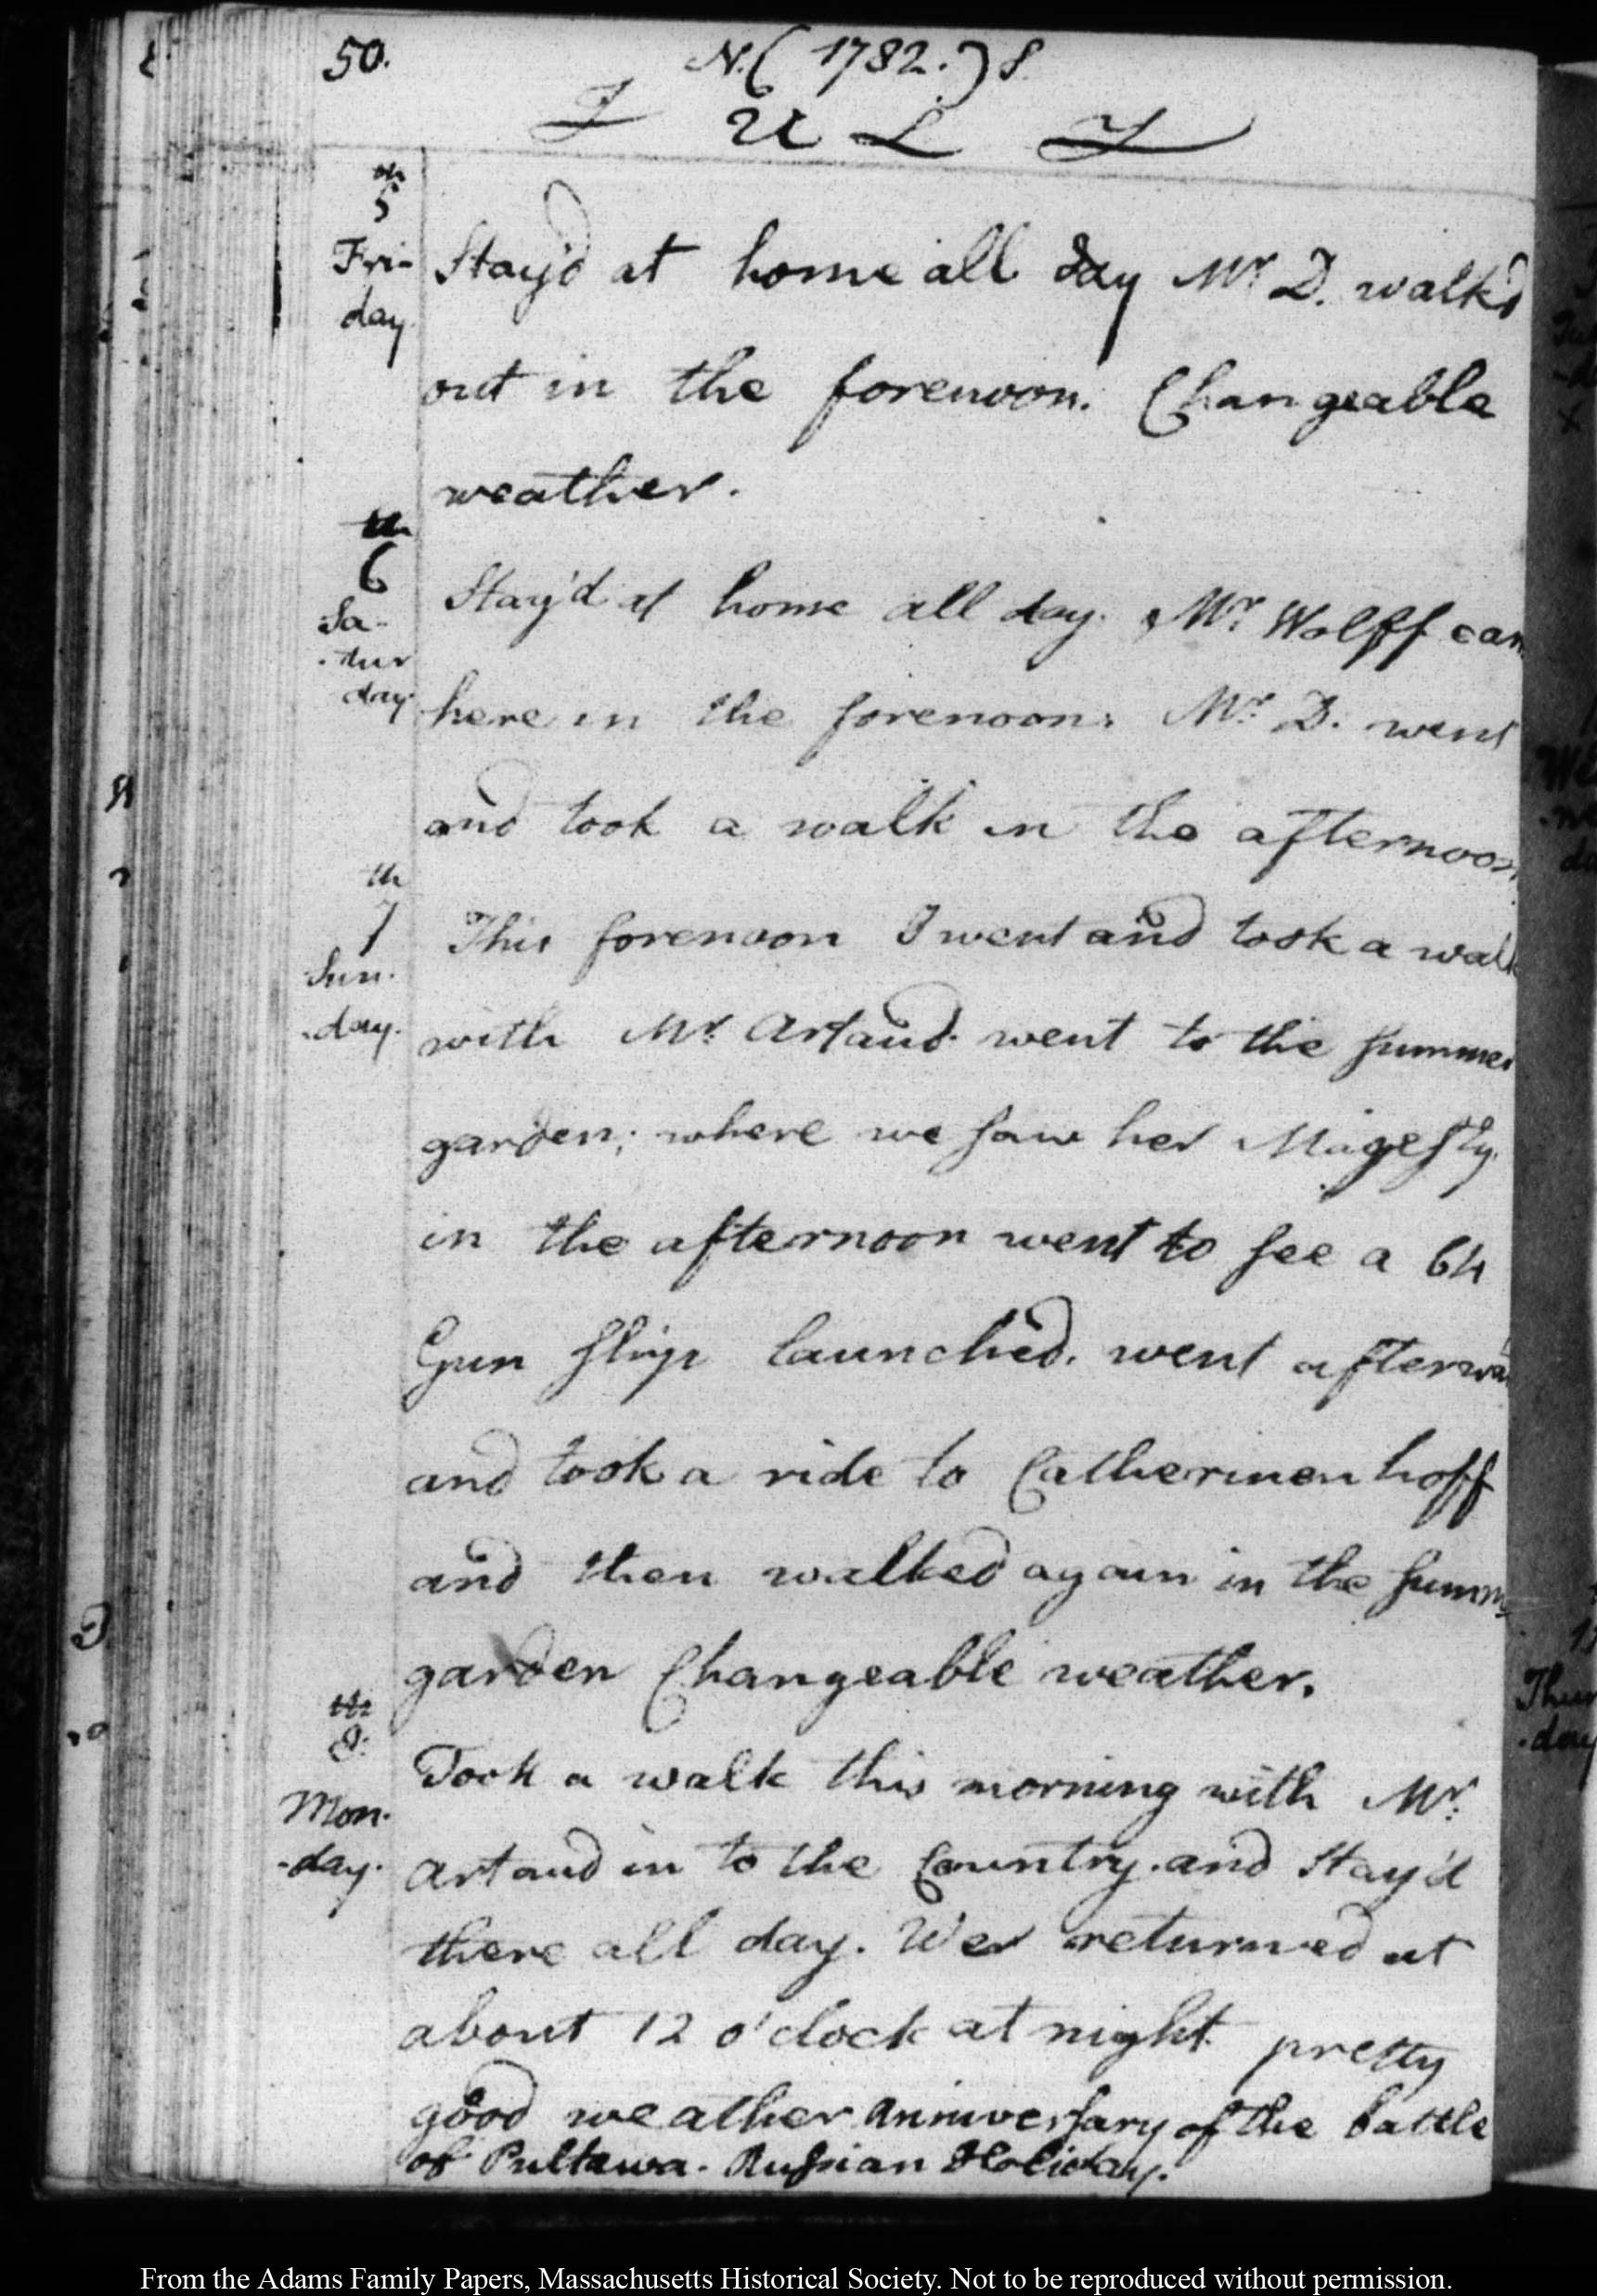 50.
N. (1782.) 8
JULY
th
5
Fri-
day
Stay'd at home all day Mr. D. walk'd
out in the forenoon. Changeable
weather.
th
6
Sa-
-tur
day
Stay'd at home all day. Mr. Wolff cam
here in the forenoon. Mr. D. went
and took a walk in the afternoon.
th
7
Sun-
-day.
This forenoon I went and took a walk
with Mr. Artaud. went to the summer
garden; where we saw her Magesty.
in the afternoon went to see a 64
Gun ship launched. went afterwa
and took a ride to Catherinenhoff
and then walked again in the summ
garden Changeable weather.
th
8.
Mon-
-day.
Took a walk this morning with Mr.
Artaud in to the Country. and stay'd
there all day. We returned at
about 12 o'clock at night. pretty
good weather Anniversary of the battle
of Pultawa. Russian Holiday.
Thur
-day
From the Adams Family Papers, Massachusetts Historical Society. Not to be reproduced without permission.